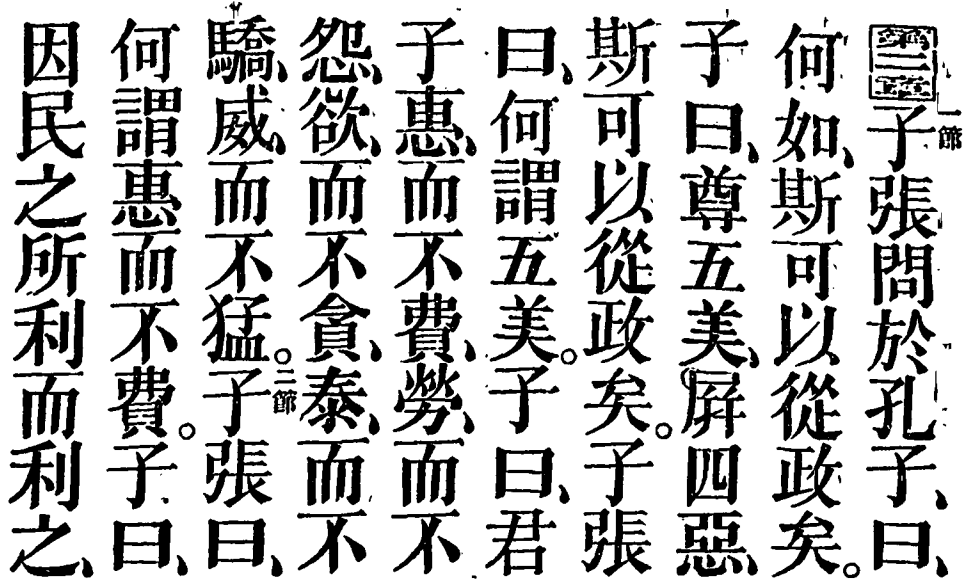 第二章一節子張問於孔子、曰、
何如、斯可以從政矣。
子曰、尊五美、屛四惡、
斯可以從政矣。子張
曰、何謂五美。子曰、君
子惠、而不費、勞、而不
怨、欲、而不貪、泰、而不
驕、威、而不猛。二節子張曰、
何謂惠而不費。子曰、
因民之所利而利之、